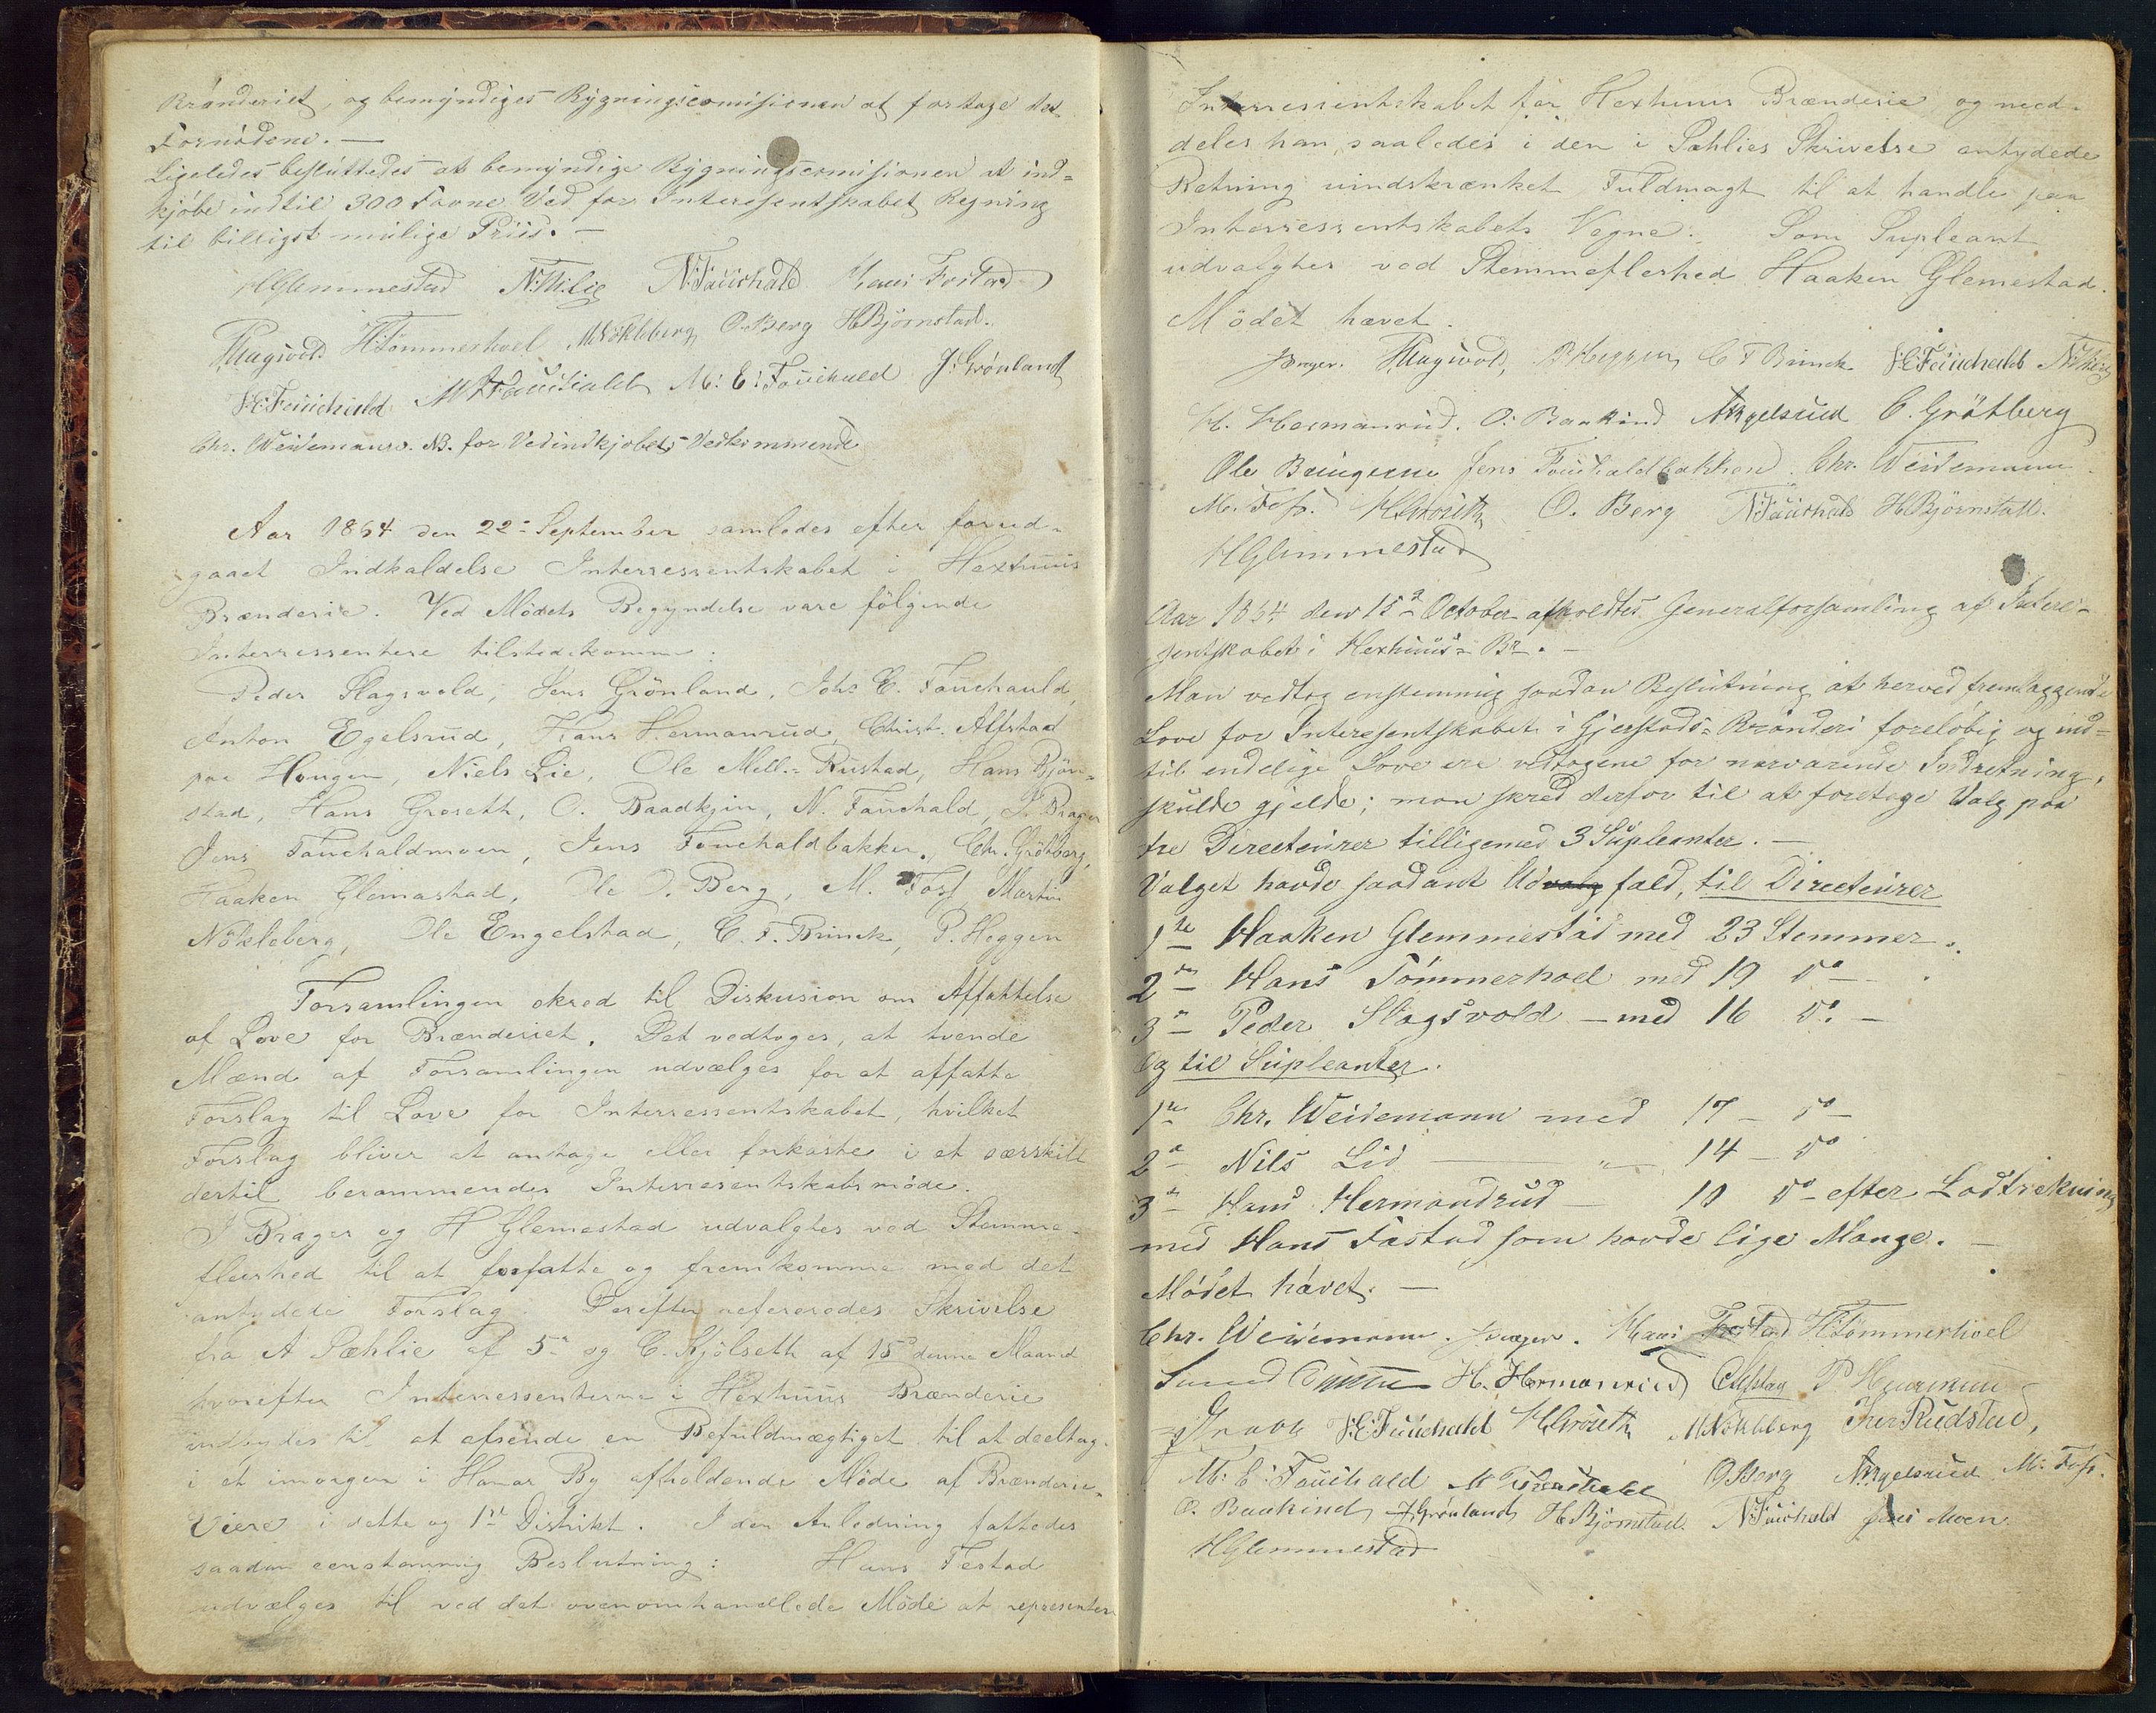 Brænderiet, og bemyndiges Bygningscomisionen at fortage det
Fornødene. —
Ligeledes besluttedes at bemyndige Bygningscomisionen at ind=
kjøbe indtil 300 Favne Ved for Interesentskabet Regning
til billigst mulige Priis. —
HGlemmestad N. Lie N. Fauchald Hans Festad
PSlagsvold HTømmerhoel MNökleberg O. Berg HBjørnstad.
J.E.Fauchald M Fauchald M: E: Fouchald J. Grønland
Chr. Weidemann. NB. for Vedindkjøbets Vedkommende
Aar 1864 den 22 September samledes efter forud-
gaaet Indkaldelse Interressentskabet i Hexhuus
Brænderie. Ved Mödets Begyndelse vare fölgende
Interressentere tilstedekomne:
Peder Slagsvold, Jens Grönland, Johs E. Fauchauld,
Anton Egelsrud, Hans Hermanrud, Christ. Alfstad
paa Haugen, Niels Lie, Ole Mell.= Rustad, Hans Björn=
stad, Hans Groseth, O. Baadkjin, N. Fauchald, J. Brager
Jens Fauchaldmoen, Jens Fouchaldbakken, Chr. Gröthberg,
Haaken Glemastad, Ole O. Berg, M. Foss, Martin
Nökleberg, Ole Engelstad, C. F. Brinck, P. Heggen
Forsamlingen skred til Diskusion om Affattelse
af Love for Brænderiet. Det vedtoges, at tvende
Mænd af Forsamlingen udvælges for at affatte
Forslag til Love for Interressentskabet, hvilket
Forslag bliver at antage eller forkaste i et særskilt
dertil berammendes Interresentskabsmöde.
J Brager og H Glemestad udvalgtes ved Stemme-
fleerhed til at forfatte og fremkomme med det
antydede Forslag. Derefter refereredes Skrivelse
fra A Sæhlie af 5te og C. Kjölseth af 15de denne Maaned
hvorefter Interressenterne i Hexhuus Brænderie
indbydes til at afsende en Befuldmægtiget til at deeltage
i et imorgen i Hamar By afholdende Möde af Brænderie-
Eiere i dette og 1ste Distrikt. I den Anledning fattedes
saadan eenstemmig Beslutning: Hans Festad
udvælges til ved det ovenomhandlede Möde at representere
Interressentskabet for Hexhuus Brænderie og med-
deles han saaledes i den i Sæhlies Skrivelse antydede
Retning uindskrænket Fuldmagt til at handle paa
Interressentskabets Vegne. Som Supleant
udvalgtes ved Stemmeflerhed Haaken Glemestad.
Mödet hævet.
JBrager. PSlagsvold, P Heggen C F Brinck J.E.Fauchald N. Lie
H. Hermanrud. O. Baakind AEgelsrud C. Gröthberg
Ole Jens Fouchaldbakken. Chr. Weidemann.
M. Foss. HGroseth O. Berg N.Fauchald HBjørnstad.
HGlemmestad
Aar 1864 den 15de October afholdtes Generalforsamling af Intere-
sentskabet i Hexhuus= Br. —
Man vedtog enstemmig saadan Beslutning at herved fremlaggende
Love for Interesentskabet i Gjerstads= Brænderi foreløbig og ind=
til endelige Love ere vedtagene for nærværende Indretning,
skulde gjelde; man skred derfor til at foretage Valg paa
tre Directeurer tilligemed 3 Supleanter. —
Valget havde saadant Udvalg fald, til Directeurer
1ste Haaken Glemmestad med 23 Stemmer.
2den Hans Tömmerhoel med 19 do —
3de Peder Slagsvold — med 16 do. —
Og til Supleanter.
1ste Chr. Weidemann med 17 — do —
2de Nils Lie — " — 14 — do
3de Hans Hermandrud — 10 do — efter Lodtrekning
med Hans Fæstad som havde lige Mange. —
Mödet hævet. —
Chr. Weidemann. JBrager. Hans Festad HTömmerhoel
H. Hermanrud
J.E.Fauchald HGroseth MNökleberg Iver Rudstad,
M: E: Fouchald M Fauchald OBerg AEgelsrud M. Foss.
O. Baakind JGrønland HBjørnstad. N.Fauchald Jens Moen.
HGlemmestad